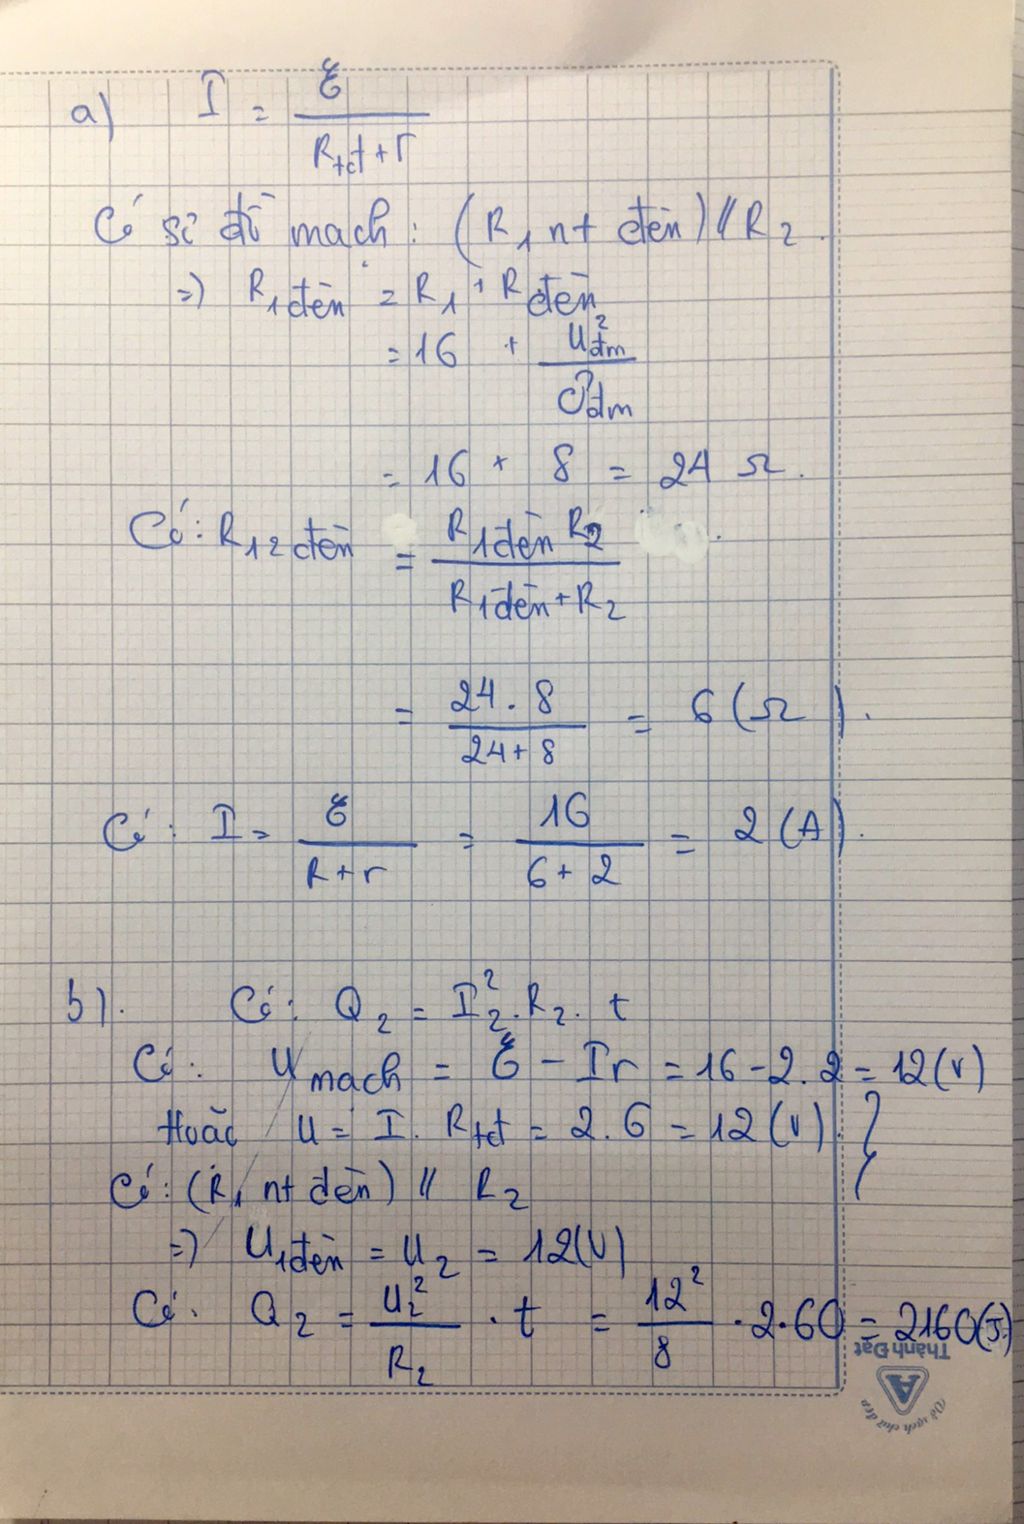 a) I = ℰ / (Rtđ + r)
Có sơ đồ mạch: (R1 nt đèn) // R2.
=> R1đèn = R1 + Rđèn
= 16 + U²đm / Pđm
= 16 + 8 = 24 Ω.
Có: R12đèn = R1đèn R2 / (R1đèn + R2)
= 24 . 8 / (24 + 8) = 6 (Ω).
Có: I = ℰ / (R + r) = 16 / (6 + 2) = 2 (A).
b). Có: Q2 = I2². R2. t
Có: Umạch = ℰ - Ir = 16 - 2.2 = 12 (V)
Hoặc U = I. Rtđ = 2.6 = 12 (V).
Có: (R1 nt đèn) // R2
=> U1đèn = U2 = 12 (V)
Có: Q2 = U2² / R2 . t = 12² / 8 . 2.60 = 2160 (J)
Thành Đạt
A
Vở sạch chữ đẹp